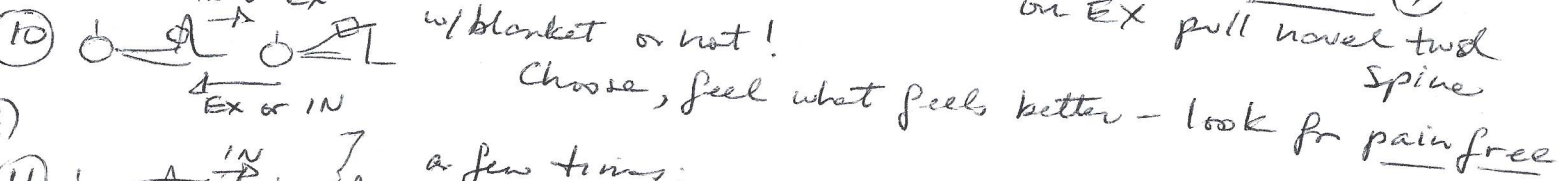 10 w/blanket or not!
on EX pull navel twd
spine
Choose, feel what feels better - look for pain free
EX or IN
11 IN
a few times.